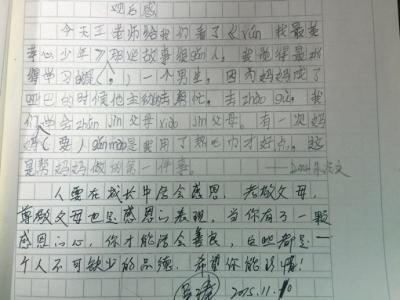 观后感
今天王老师给我们看了《xún 我最美
孝心少年》那些故事很gǎn人。我觉得最
得学习的是( )一个男生，因为妈妈成了
的时候他主动去帮忙。去zhào gù。我
们学会zūn jìn父母xiào jìn父母。有一次妈
妈(要)gǎn mào是我用了热 才好点。这
是帮妈妈做的第一件事。
人要在成长中学会感恩，孝敬父母，
尊敬父母也是感恩的表现，当你有了一颗
感恩的心，你才能学会善良，这些都是一
个人不可缺少的品德，希望你能珍惜！
2015.11.10